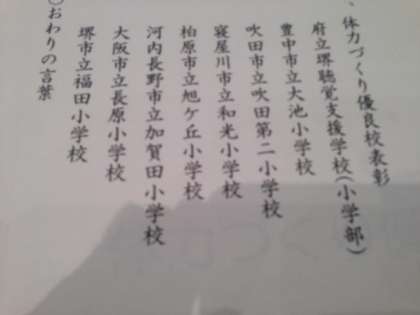 、体力づくり優良校表彰
府立堺聴覚支援学校(小学部)
豊中市立大池小学校
吹田市立吹田第二小学校
寝屋川市立和光小学校
柏原市立旭ケ丘小学校
河内長野市立加賀田小学校
大阪市立長原小学校
堺市立福田小学校
○おわりの言葉